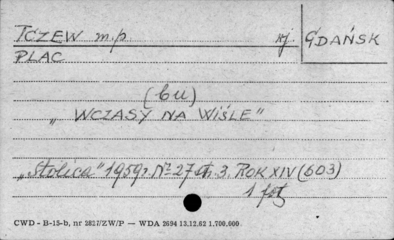 TCZEW m.p wj GDAŃSK
PLAC
(bu)
„WCZASY NA WIŚLE"
„Stolica" 1959r. Nr 27 str. 3. ROK XIV (603)
1 fot
CWD - B-15-b, nr 2827/ZW/P — WDA 2694 13.12.62 1.700.000